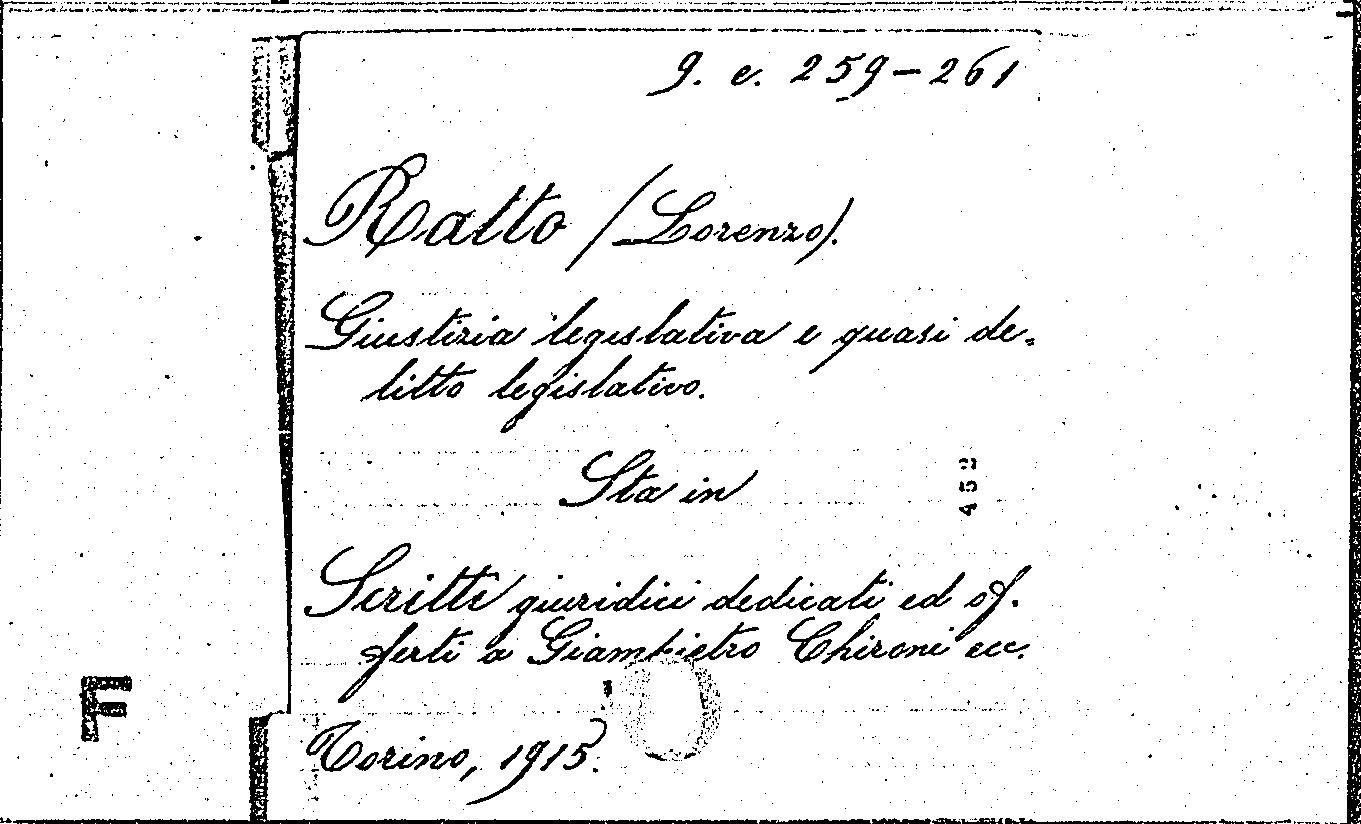 9. e. 259-261
Ratto (Lorenzo).
Giustizia legislativa e quasi de-
litto legislativo.
Sta in
452
Scritti giuridici dedicati ed of-
ferti a Giampietro Chironi ecc.
F
Torino, 1915.